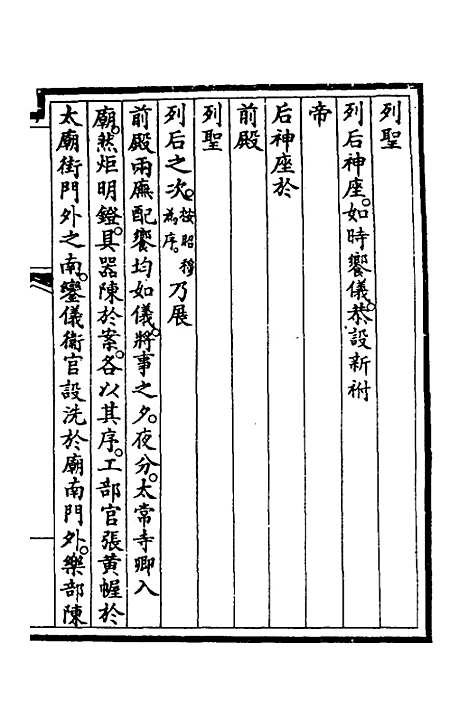 列聖
列后神座。如時饗儀。恭設新祔
帝
后神座於
前殿
列聖
列后之次。按昭穆為序。乃展
前殿兩廡配饗均如儀。將事之夕。夜分。太常寺卿入
廟。爇炬明鐙。具器陳於案。各以其序。工部官張黃幄於
太廟街門外之南。鑾儀衛官設洗於廟南門外。樂部陳